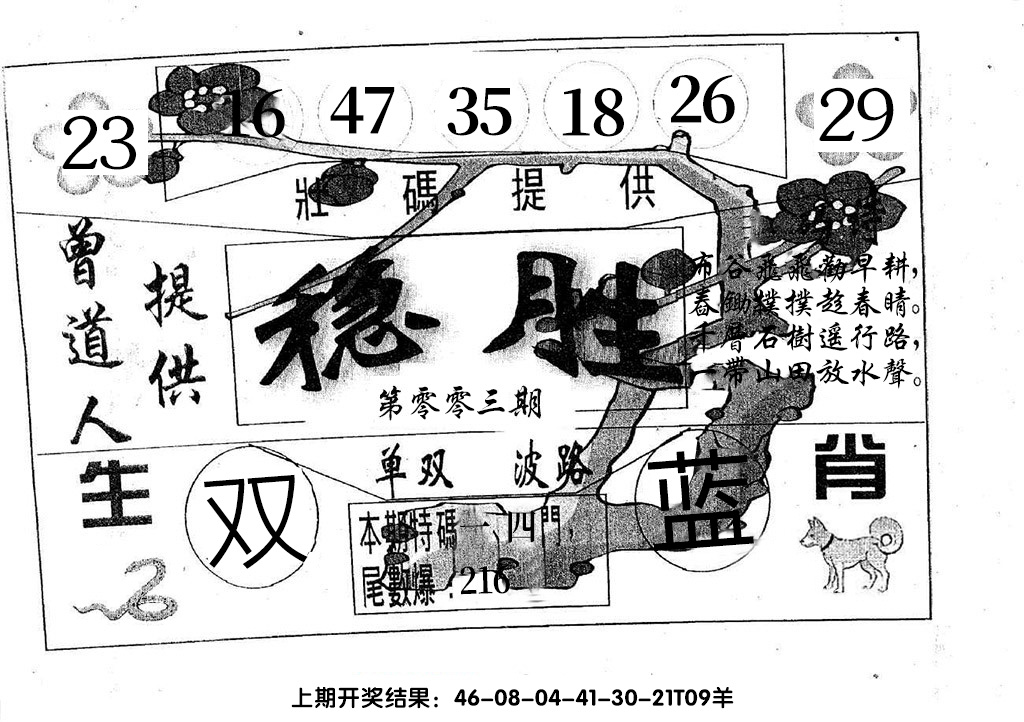 23 16 47 35 18 26 29
壯碼提供
特
曾道人
提供
穩勝
第零零三期
布谷飛飛勸早耕，
舂鋤撲撲趁春晴。
千層石樹遥行路，
一帶山田放水聲。
单双 波路
生肖
双
蓝
本期特碼一、四門，
尾數爆：216
上期开奖结果：46-08-04-41-30-21T09羊